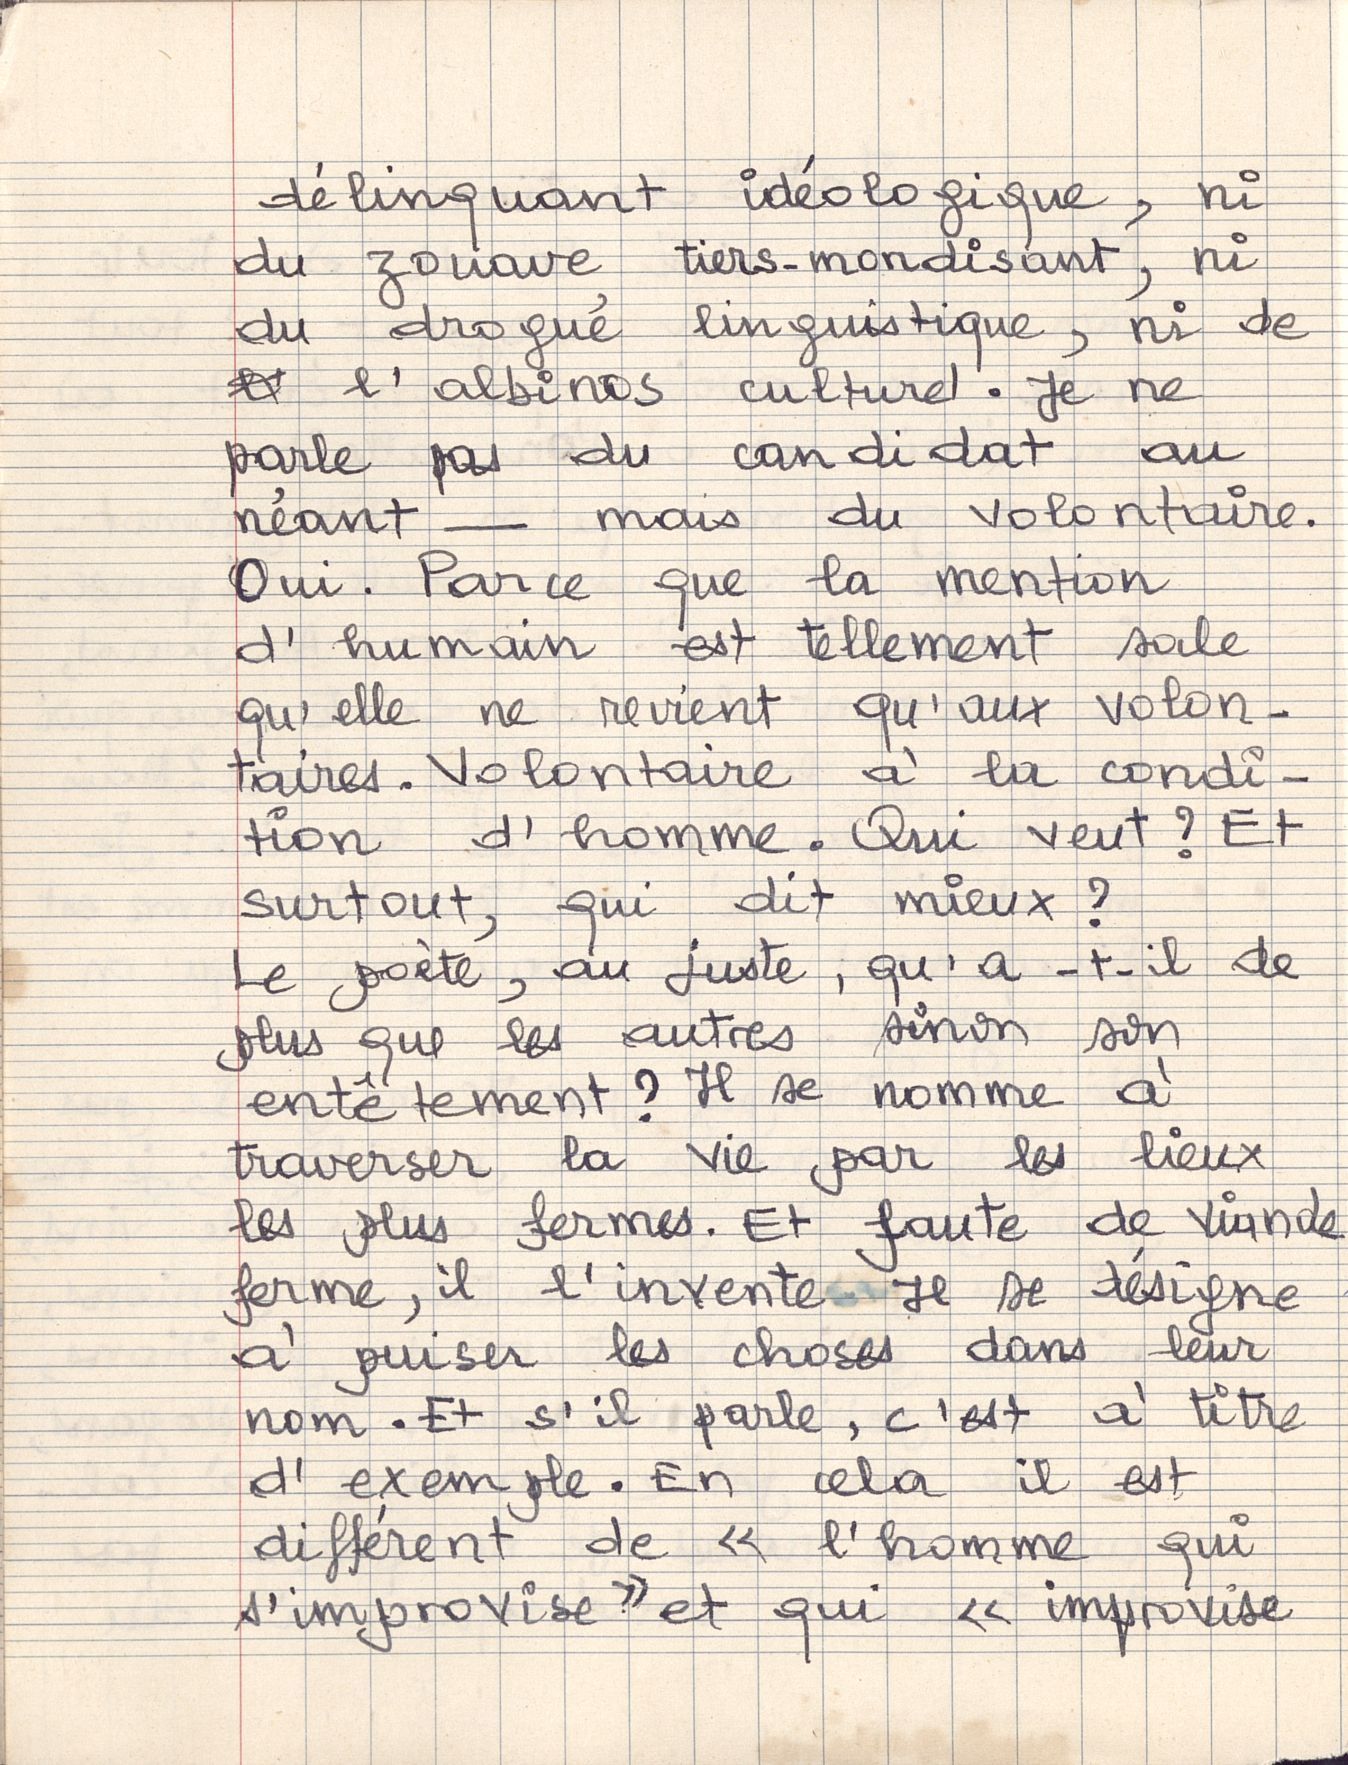 délinquant idéologique, ni
du zouave tiers-mondisant, ni
du drogué linguistique, ni de
l'albinos culturel. Je ne
parle pas du candidat au
néant — mais du volontaire.
Oui. Parce que la mention
d'humain est tellement sale
qu'elle ne revient qu'aux volon-
taires. Volontaire à la condi-
tion d'homme. Qui veut ? Et
surtout, qui dit mieux ?
Le poète, au juste, qu'a-t-il de
plus que les autres sinon son
entêtement ? Il se nomme à
traverser la vie par les lieux
les plus fermes. Et faute de viande
ferme, il l'invente. Il se désigne
à puiser les choses dans leur
nom. Et s'il parle, c'est à titre
d'exemple. En cela il est
différent de « l'homme qui
s'improvise » et qui « improvise